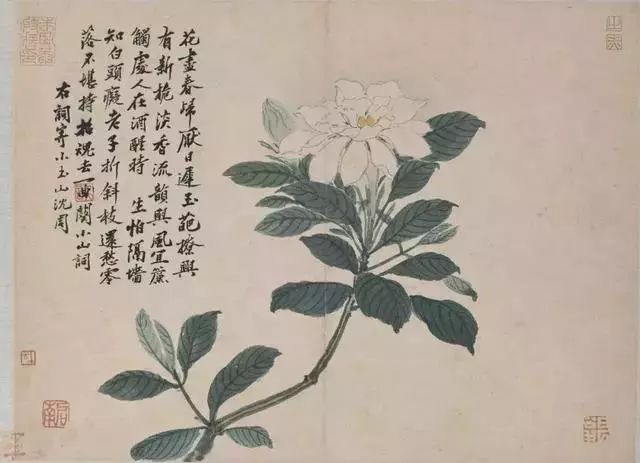 花盡春歸厭日遲玉葩撩興
有新梔淡香流韻與風宜簾
觸處人在酒醒時 生怕隔牆
知白頭癡老子折斜枝還愁零
落不堪持招魂去一闋小山詞
右詞寄小玉山沈周